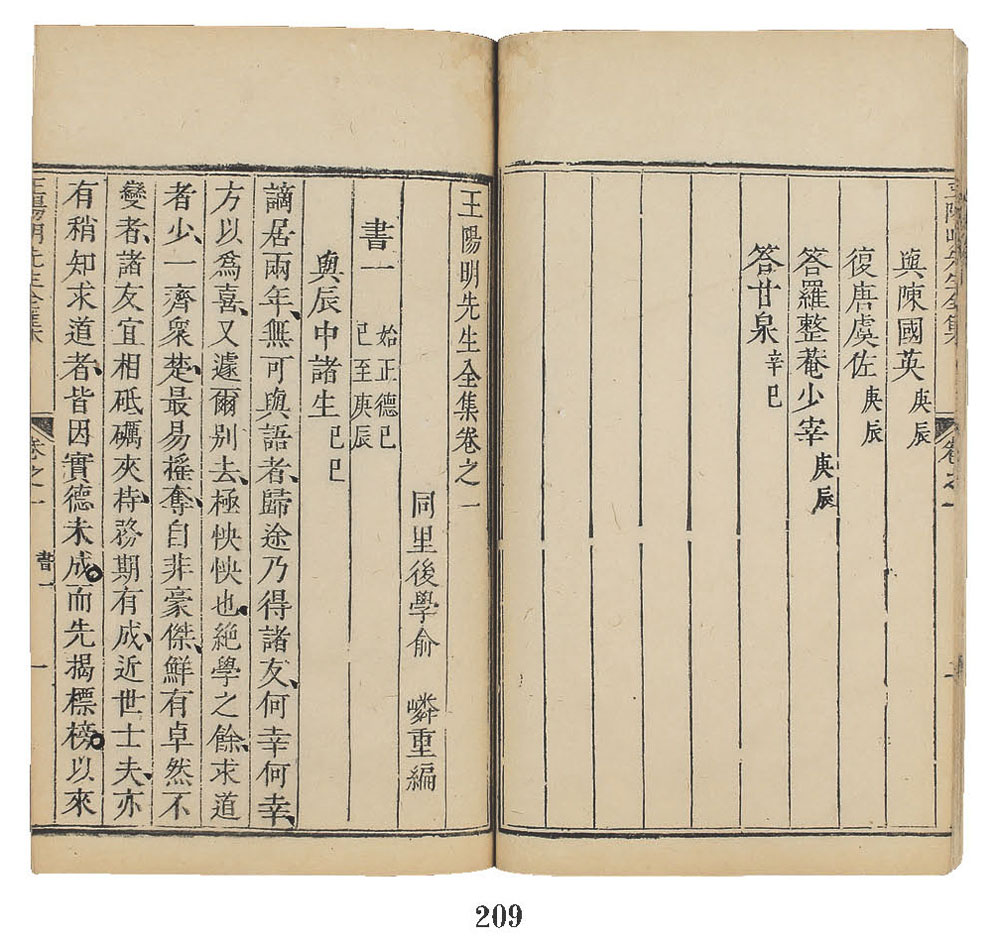 與陳國英庚辰
復唐虞佐庚辰
答羅整菴少宰庚辰
答甘泉辛巳
卷之一
王陽明先生全集卷之一
同里後學俞 嶙重編
書一 始正德己巳至庚辰
與辰中諸生己巳
謫居兩年、無可與語者、歸途乃得諸友、何幸何幸、
方以為喜、又遽爾別去、極怏怏也、絕學之餘、求道
者少、一齊眾楚、最易搖奪、自非豪傑、鮮有卓然不
變者、諸友宜相砥礪夾持、務期有成、近世士夫、亦
有稍知求道者、皆因實德未成。而先揭標榜。以來
王陽明先生全集
卷之一
書一
一
209